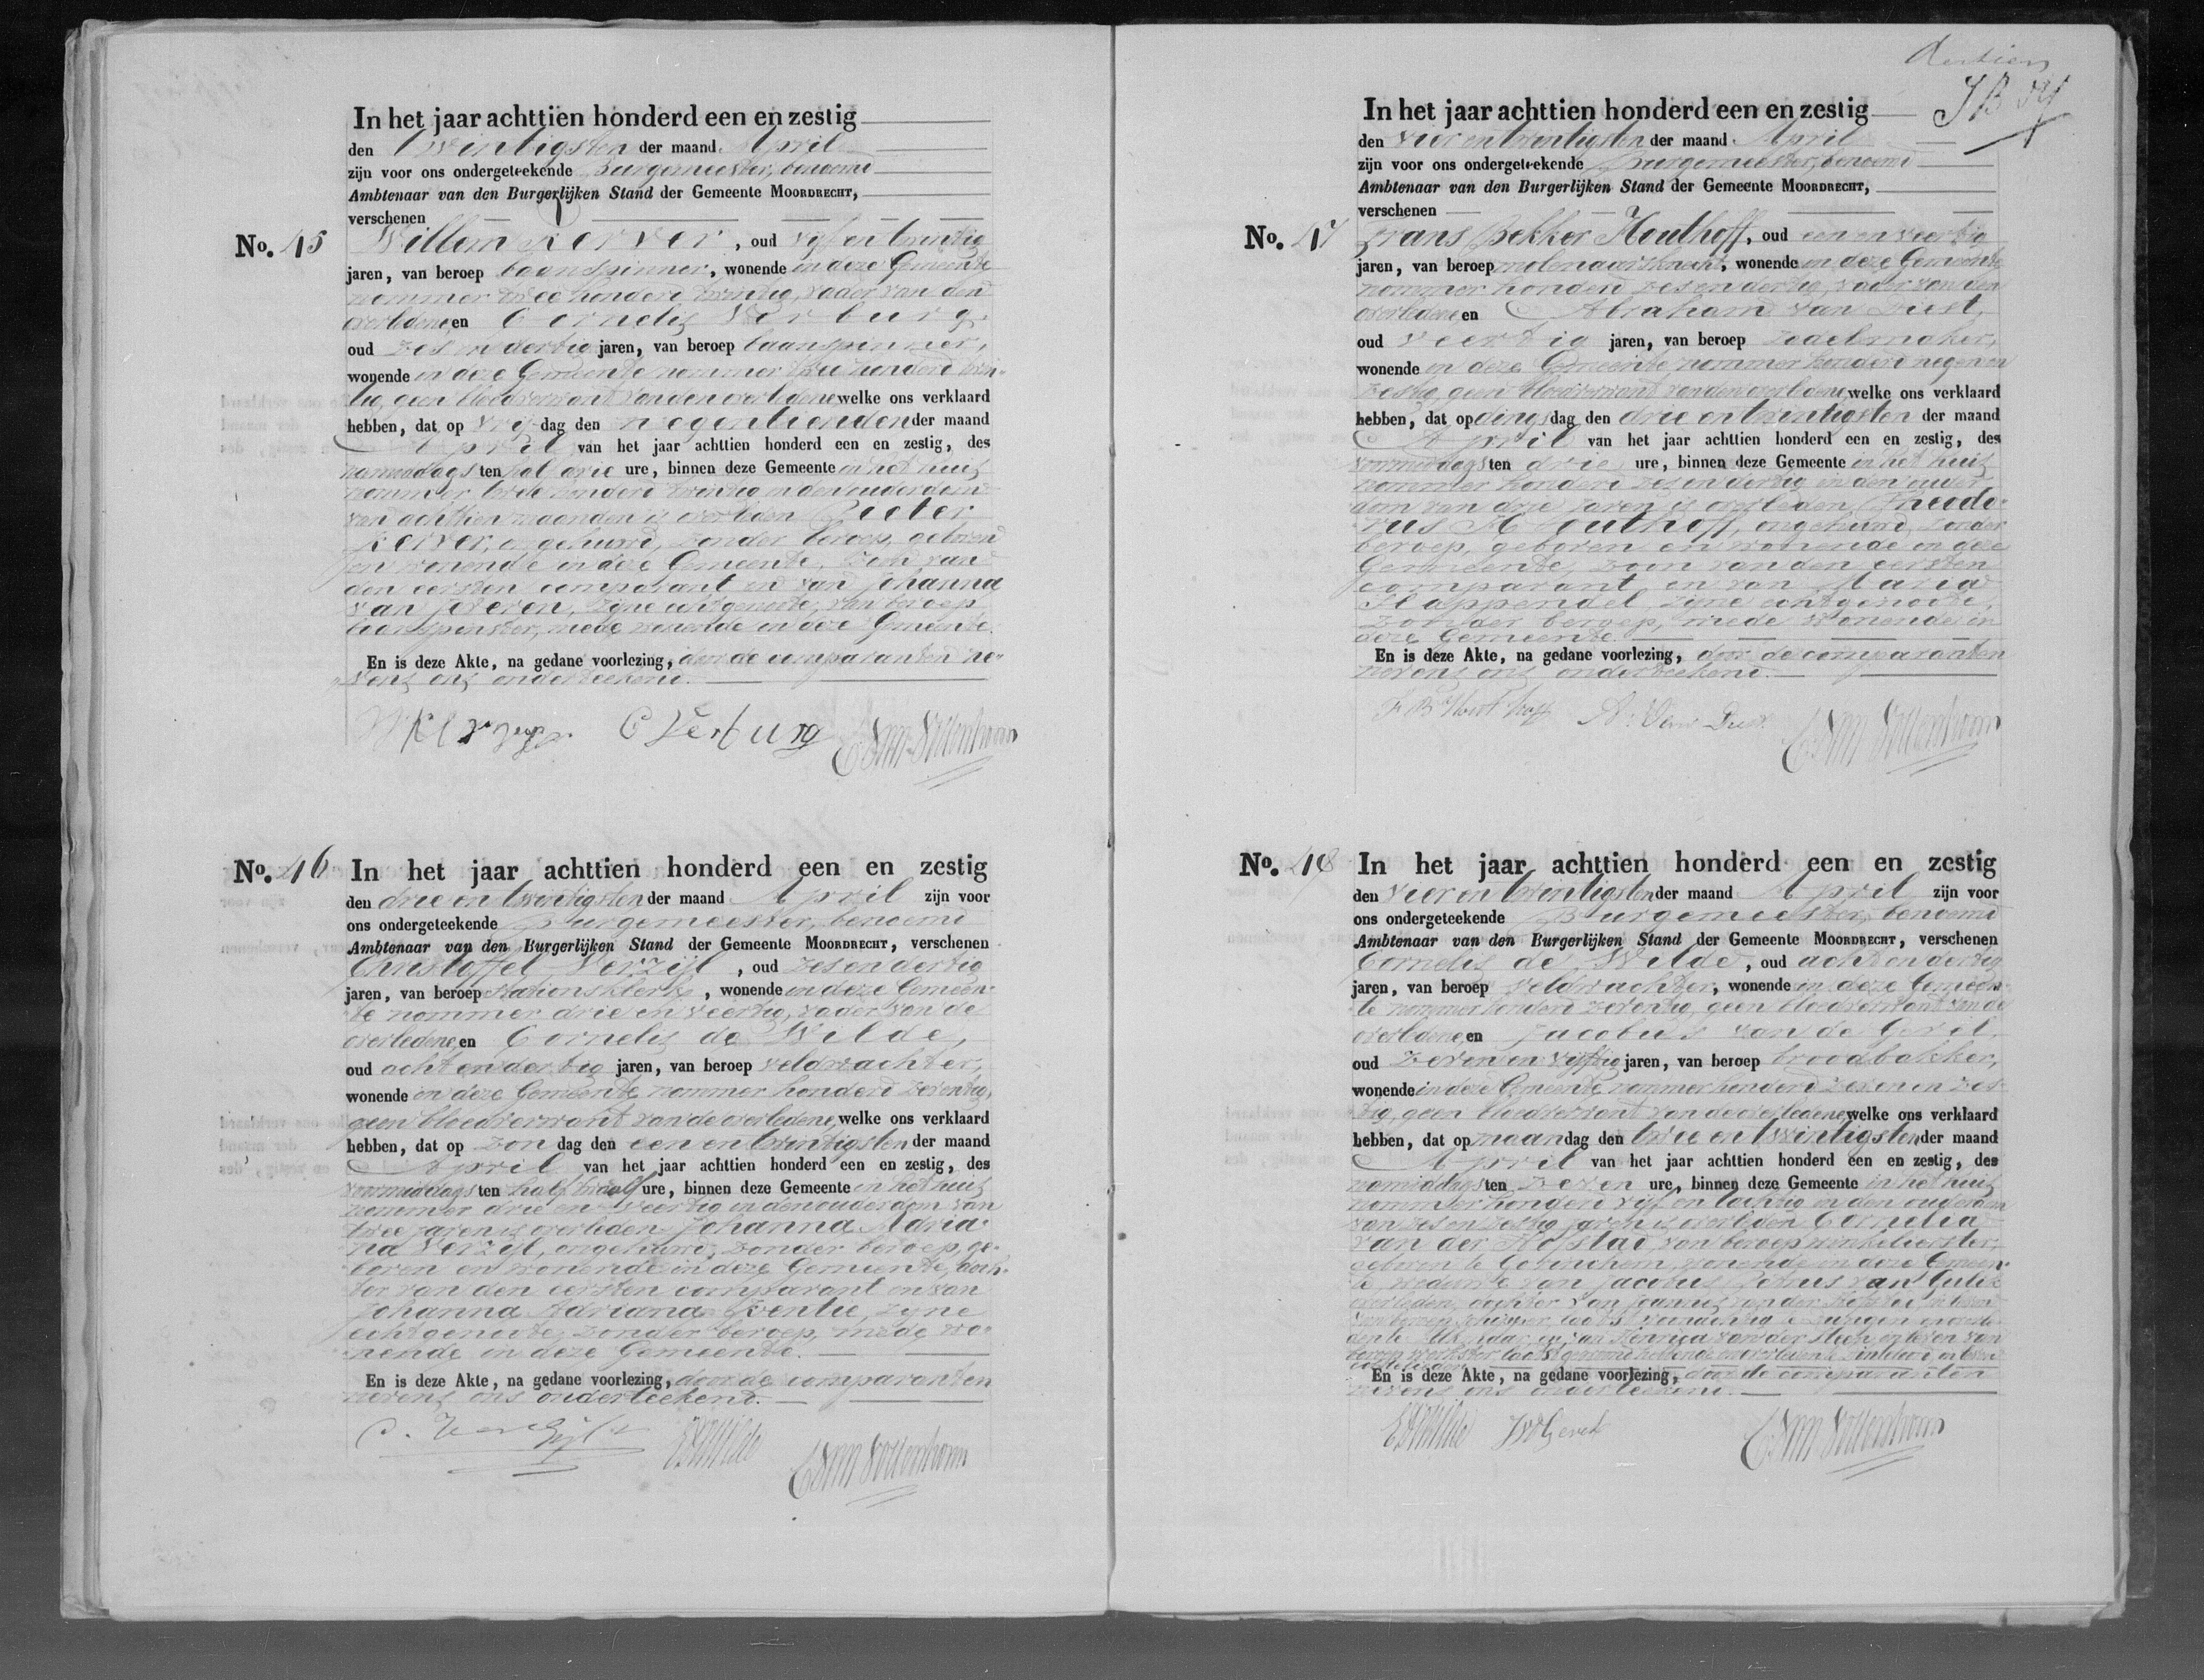 In het jaar achttien honderd een en zestig
den twintigsten der maand April
zijn voor ons ondergeteekende Burgemeester, benoemd
Ambtenaar van den Burgerlijken Stand der Gemeente MOORDRECHT,
verschenen
No. 45 Willem Kerver, oud vijf en twintig
jaren, van beroep baanspinner, wonende in deze Gemeente
nommer twee honderd twintig, vader van den
overledene, en Cornelis Verburg,
oud zes en dertig jaren, van beroep baanspinner,
wonende in deze Gemeente nommer twee honderd twin-
tig, geen bloedverwant van den overledene, welke ons verklaard
hebben, dat op vrijdag den negentienden der maand
April van het jaar achttien honderd een en zestig, des
namiddags ten half drie ure, binnen deze Gemeente in het huis
nommer twee honderd twintig in den ouderdom
van achttien maanden is overleden Pieter
Kerver, ongehuwd, zonder beroep, geboren
en wonende in deze Gemeente, zoon van
den eersten comparant en van Johanna
van Jeveren, zijne echtgenoote, van beroep
baanspinster, mede wonende in deze Gemeente.
En is deze Akte, na gedane voorlezing, door de comparanten ne-
vens ons onderteekend.
C Verburg
No. 46 In het jaar achttien honderd een en zestig
den drie en twintigsten der maand April zijn voor
ons ondergeteekende Burgemeester, benoemd
Ambtenaar van den Burgerlijken Stand der Gemeente MOORDRECHT, verschenen
Christoffel Verzijl, oud zes en dertig
jaren, van beroep stationsklerk, wonende in deze Gemeen-
te nommer drie en veertig, vader van de
overledene, en Cornelis de Wilde,
oud acht en dertig jaren, van beroep veldwachter,
wonende in deze Gemeente nommer honderd zeventig,
geen bloedverwant van de overledene, welke ons verklaard
hebben, dat op zondag den een en twintigsten der maand
April van het jaar achttien honderd een en zestig, des
voormiddags ten half twaalf ure, binnen deze Gemeente in het huis
nommer drie en veertig in den ouderdom van
twee jaren is overleden Johanna Adria-
na Verzijl, ongehuwd, zonder beroep, ge-
boren en wonende in deze Gemeente, doch-
ter van den eersten comparant en van
Johanna Adriana, zijne
echtgenoote, zonder beroep, mede wo-
nende in deze Gemeente.
En is deze Akte, na gedane voorlezing, door de comparanten
nevens ons onderteekend.
C. Verzijl
CdWilde
dertien
In het jaar achttien honderd een en zestig
den vier en twintigsten der maand April
zijn voor ons ondergeteekende Burgemeester, benoemd
Ambtenaar van den Burgerlijken Stand der Gemeente MOORDRECHT,
verschenen
No. 47 Frans Bekker Houthoff, oud een en veertig
jaren, van beroep molenaarsknecht, wonende in deze Gemeente
nommer honderd zes en dertig, vader van den
overledene en Abraham van Diest,
oud veertig jaren, van beroep zadelmaker,
wonende in deze Gemeente nommer honderd negen en
zestig, geen bloedverwant van den overledene, welke ons verklaard
hebben, dat op dingsdag den drie en twintigsten der maand
April van het jaar achttien honderd een en zestig, des
voormiddags ten drie ure, binnen deze Gemeente in het huis
nommer honderd zes en dertig in den ouder-
dom van drie jaren is overleden Theodo-
rus Houthoff, ongehuwd, zonder
beroep, geboren en wonende in deze
Gemeente, zoon van den eersten
comparant en van Maria
Slappendel, zijne echtgenoote,
zonder beroep, mede wonende in
deze Gemeente.
En is deze Akte, na gedane voorlezing, door de comparanten
nevens ons onderteekend.
F B Houthoff A. Van Diest
No. 48 In het jaar achttien honderd een en zestig
den vier en twintigsten der maand April zijn voor
ons ondergeteekende Burgemeester, benoemd
Ambtenaar van den Burgerlijken Stand der Gemeente MOORDRECHT, verschenen
Cornelis de Wilde, oud acht en dertig
jaren, van beroep veldwachter, wonende in deze Gemeen-
te nommer honderd zeventig, geen bloedverwant van de
overledene, en Jacobus van de
oud zeven en vijftig jaren, van beroep broodbakker,
wonende in deze Gemeente nommer honderd zeven en zes-
tig, geen bloedverwant van de overledene, welke ons verklaard
hebben, dat op maandag den twee en twintigsten der maand
April van het jaar achttien honderd een en zestig, des
namiddags ten zeven ure, binnen deze Gemeente in het huis
nommer honderd vijf en tachtig in den ouderdom
van zes en zestig jaren is overleden Cornelia
van der Hofstad, van beroep winkelierster,
geboren te Gorinchem, wonende in deze Gemeen-
te, weduwe van Jacobus van Gulik
overleden, dochter van Joannes van der Hofstad, in leven
van beroep schipper, laatst woonachtig te
en van van der Steen, in leven van
beroep
En is deze Akte, na gedane voorlezing, door de comparanten
nevens ons onderteekend.
CdWilde